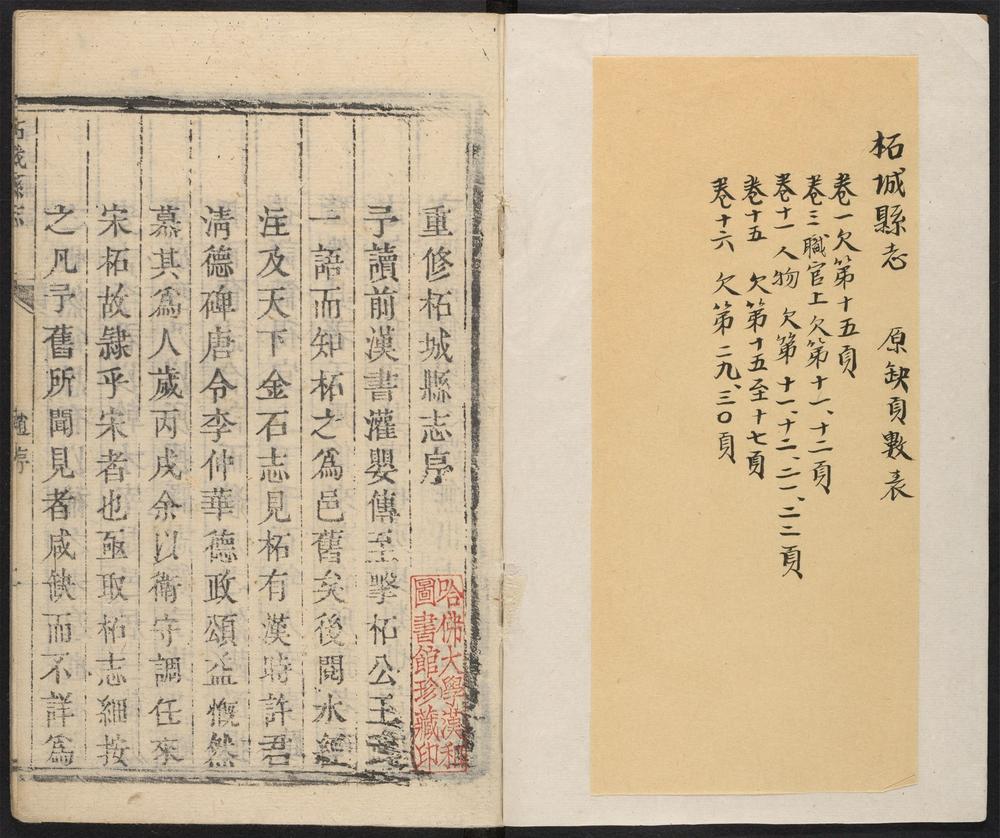 柘城縣志 原缺頁數表
卷一欠第十五頁
卷三職官上欠第十一、十二頁
卷十一人物欠第十一、十二、二一、二二頁
卷十五 欠第十五至十七頁
卷十六 欠第二九、三〇頁
重修柘城縣志序
予讀前漢書灌嬰傳至擊柘公王武
一語而知柘之爲邑舊矣後閱水經
注及天下金石志見柘有漢時許君
清德碑唐令李仲華德政頌益慨然
慕其爲人歲丙戌余以衛守調任來
宋柘故隸乎宋者也亟取柘志細按
之凡予舊所聞見者咸缺而不詳爲
柘城縣志
序
哈佛大學漢和
圖書館珍藏印